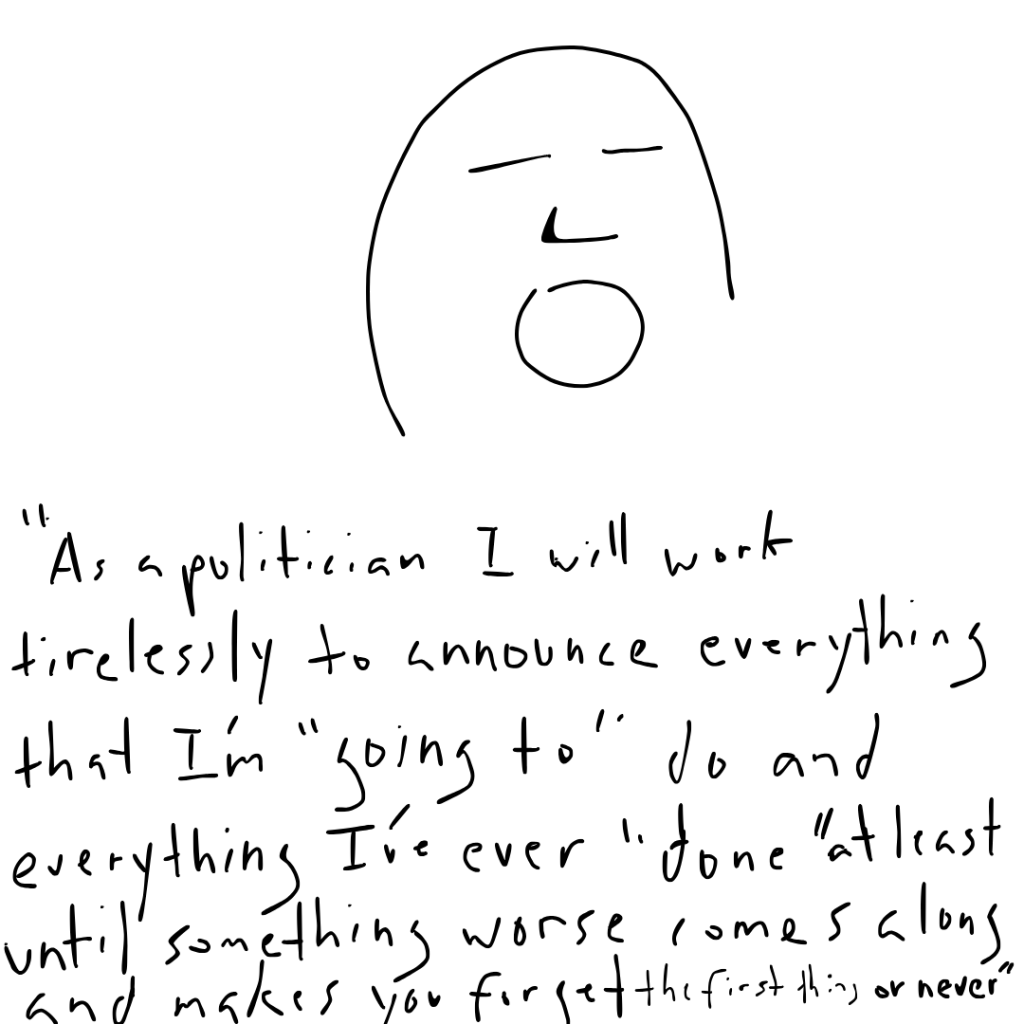 "As a politician I will work
tirelessly to announce everything
that I'm "going to" do and
everything I've ever "done" at least
until something worse comes along
and makes you forget the first thing or never"